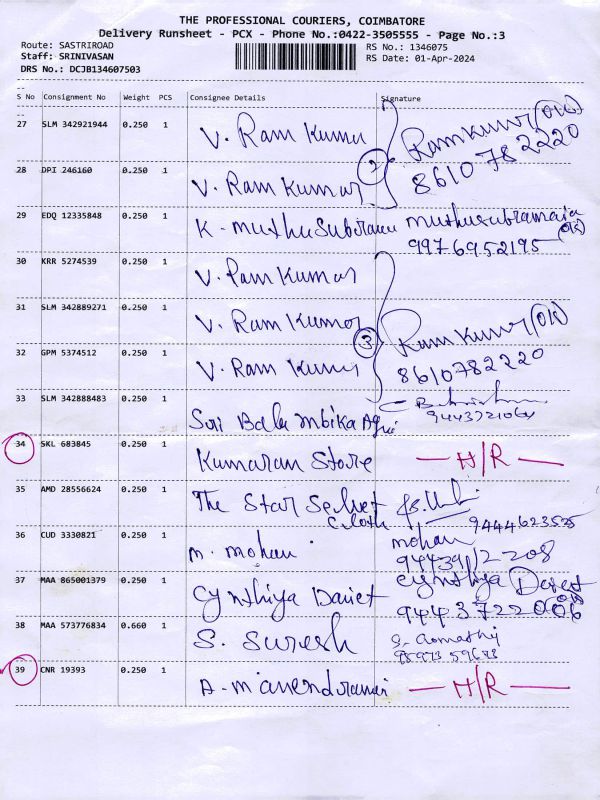 THE PROFESSIONAL COURIERS, COIMBATORE
Delivery Runsheet - PCX - Phone No.:0422-3505555 - Page No.:3
Route: SASTRIROAD
RS No.: 1346075
Staff: SRINIVASAN
RS Date: 01-Apr-2024
DRS No.: DCJB134607503
S No Consignment No Weight PCS Consignee Details Signature
27 SLM 342921944 0.250 1 V. Ram Kumar Ram Kumar (Ok)
8610782220
28 DPI 246160 0.250 1 V. Ram Kumar 2
29 EDQ 12335848 0.250 1 K. muthu Subiramani muthusubramania
9976952195 (Ok)
30 KRR 5274539 0.250 1 V. Ram Kumar
31 SLM 342889271 0.250 1 V. Ram Kumar 3 Ram Kumar (Ok)
32 GPM 5374512 0.250 1 V. Ram Kumar 8610782220
33 SLM 342888483 0.250 1 Sri Balambika Agri
34 SKL 683845 0.250 1 Kumaran Store — H/R —
35 AMD 28556624 0.250 1 The Star Selvet
Cloth 9444623525
36 CUD 3330821 0.250 1 M. Mohan mohan
9443912208
37 MAA 865001379 0.250 1 Cynthiya Daviet Cynthiya
9443722006
38 MAA 573776834 0.660 1 S. Suresh S. Gomathi
39 CNR 19393 0.250 1 — H/R —